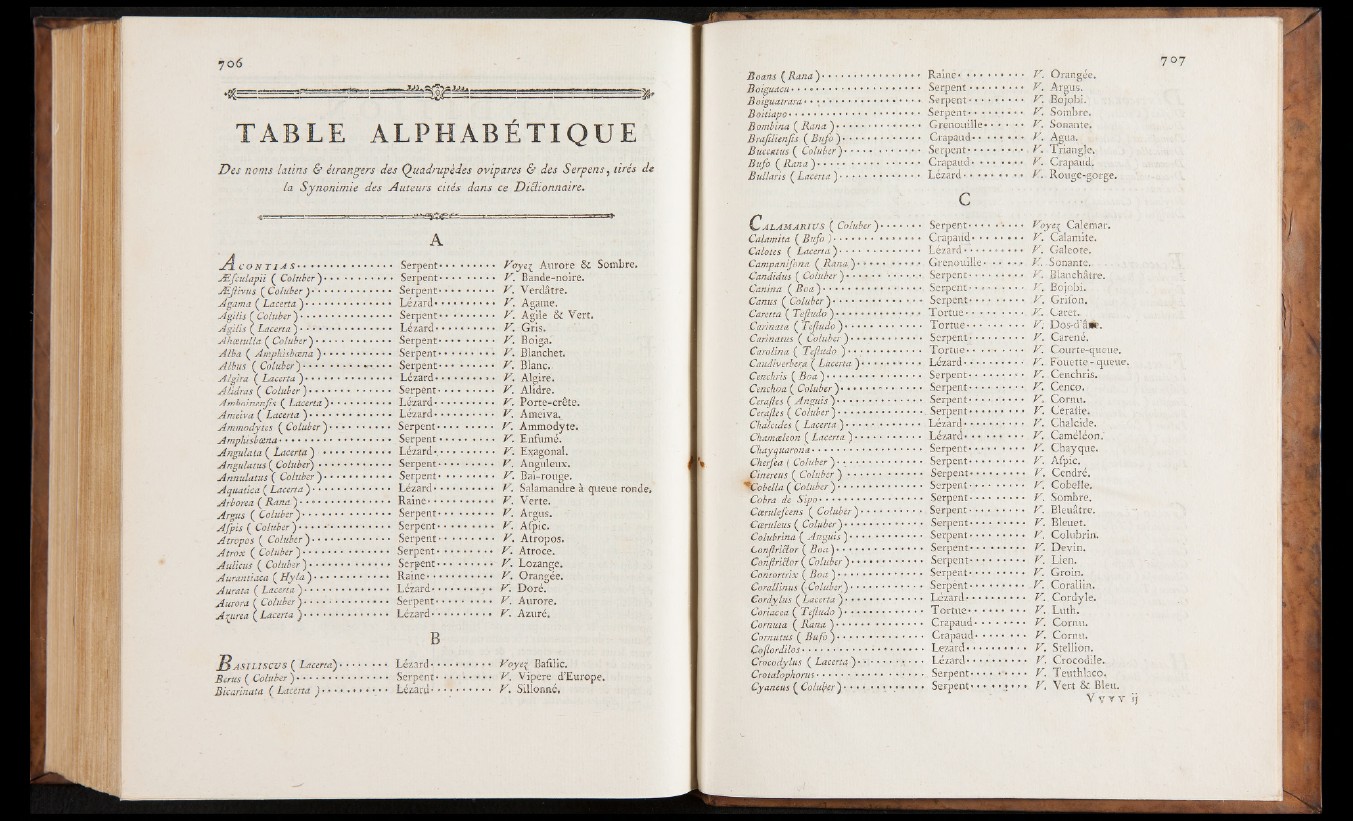 706
TABLE ALPHABÉTIQUE
Des noms latins & étrangers des Quadrupèdes ovipares & des Serpens, tirés de
la Synonimie des Auteurs cités dans ce Dictionnaire.
A
ACONTIAS · · · Serpent · · · Voyez Aurore & Sombre.
Æsculapii ( Coluber ) · · · Serpent · · · V. Bande-noire.
Æstivus ( Coluber ) · · · Serpent · · · V. Verdâtre.
Agama ( Lacerta ) · · · Lézard · · · V. Agame.
Agilis ( Coluber ) · · · Serpent · · · V. Agile & Vert.
Agilis ( Lacerta ) · · · Lézard · · · V. Gris.
Ahætulla ( Coluber ) · · · Serpent · · · V. Boiga.
Alba ( Amphisbœna ) · · · Serpent · · · V. Blanchet.
Albus ( Coluber ) · · · Serpent · · · V. Blanc.
Algira ( Lacerta ) · · · Lézard · · · V. Algire.
Alidras ( Coluber ) · · · Serpent · · · V. Alidre.
Amboinensis ( Lacerta ) · · · Lézard · · · V. Porte-crête.
Ameiva ( Lacerta ) · · · Lézard · · · V. Ameiva.
Ammodytes ( Coluber ) · · · Serpent · · · V. Ammodyte.
Amphisbœna · · · Serpent · · · V. Enfumé.
Angulata ( Lacerta ) · · · Lézard · · · V. Exagonal.
Angulatus ( Coluber ) · · · Serpent · · · V. Anguleux.
Annulatus ( Coluber ) · · · Serpent · · · V. Bai-rouge.
Aquatica ( Lacerta ) · · · Lézard · · · V. Salamandre à queue ronde.
Arborea ( Rana ) · · · Raine · · · V. Verte.
Argus ( Coluber ) · · · Serpent · · · V. Argus.
Aspis ( Coluber ) · · · Serpent · · · V. Aspic.
Atropos ( Coluber ) · · · Serpent · · · V. Atropos.
Atrox ( Coluber ) · · · Serpent · · · V. Atroce.
Aulicus ( Coluber ) · · · Serpent · · · V. Lozange.
Aurantiaca ( Hyla ) · · · Raine · · · V. Orangée.
Aurata ( Lacerta ) · · · Lézard · · · V. Doré.
Aurora ( Coluber ) · · · Serpent · · · V. Aurore.
Azurea ( Lacerta ) · · · Lézard · · · V. Azuré.
B
BASILISCUS ( Lacerta ) · · · Lézard · · · Voyez Basilic.
Berus ( Coluber ) · · · Serpent · · · V. Vipere d'Europe.
Bicarinata ( Lacerta ) · · · Lézard · · · V. Sillonné.
707
Boans ( Rana ) · · · Raine · · · V. Orangée.
Boiguacu · · · Serpent · · · V. Argus.
Boiguatrara · · · Serpent · · · V. Bojobi.
Boitiapo · · · Serpent · · · V. Sombre.
Bombina ( Rana ) · · · Grenouille · · · V. Sonante.
Brasiliensis ( Bufo ) · · · Crapaud · · · V. Agua.
Buccatus ( Coluber ) · · · Serpent · · · V. Triangle.
Bufo ( Rana ) · · · Crapaud · · · V. Crapaud.
Bullaris ( Lacerta ) · · · Lézard · · · V. Rouge-gorge.
C
CALAMARIUS ( Coluber ) · · · Serpent · · · Voyez Calemar.
Calamita ( Bufo ) · · · Crapaud · · · V. Calamite.
Calotes ( Lacerta ) · · · Lézard · · · V. Galeote.
Campanisona ( Rana ) · · · Grenouille · · · V. Sonante.
Candidus ( Coluber ) · · · Serpent · · · V. Blanchâtre.
Canina ( Boa ) · · · Serpent · · · V. Bojobi.
Canus ( Coluber ) · · · Serpent · · · V. Grison.
Caretta ( Testudo ) · · · Tortue · · · V. Caret.
Carinata ( Testudo ) · · · Tortue · · · V. Dos-d'âne.
Carinatus ( Coluber ) · · · Serpent · · · V. Carené.
Carolina ( Testudo ) · · · Tortue · · · V. Courte-queue.
Caudiverbera ( Lacerta ) · · · Lézard · · · V. Fouette-queue.
Cenchris ( Boa ) · · · Serpent · · · V. Cenchris.
Cenchoa ( Coluber ) · · · Serpent · · · V. Cenco.
Cerastes ( Anguis ) · · · Serpent · · · V. Cornu.
Cerastes ( Coluber ) · · · Serpent · · · V. Ceraste.
Chalcides ( Lacerta ) · · · Lézard · · · V. Chalcide.
Chamæleon ( Lacerta ) · · · Lézard · · · V. Caméléon.
Chayquarona · · · Serpent · · · V. Chayque.
Chersea ( Coluber ) · · · Serpent · · · V. Aspic.
Cinereus ( Coluber ) · · · Serpent · · · V. Cendré.
Cobella ( Coluber ) · · · Serpent · · · V. Cobelle.
Cobra de Sipo · · · Serpent · · · V. Sombre.
Cœrulescens ( Coluber ) · · · Serpent · · · V. Bleuâtre.
Cœruleus ( Coluber ) · · · Serpent · · · V. Bleuet.
Colubrina ( Anguis ) · · · Serpent · · · V. Colubrin.
Constrictor ( Boa ) · · · Serpent · · · V. Devin.
Constrictor ( Coluber ) · · · Serpent · · · V. Lien.
Contortrix ( Boa ) · · · Serpent · · · V. Groin.
Corallinus ( Coluber ) · · · Serpent · · · V. Corallin.
Cordylus ( Lacerta ) · · · Lézard · · · V. Cordyle.
Coriacea ( Testudo ) · · · Tortue · · · V. Luth.
Cornuta ( Rana ) · · · Crapaud · · · V. Cornu.
Cornutus ( Bufo ) · · · Crapaud · · · V. Cornu.
Costordilos · · · Lezard · · · V. Stellion.
Crocodylus ( Lacerta ) · · · Lézard · · · V. Crocodile.
Crotalophorus · · · Serpent · · · V. Teuthlaco.
Cyaneus ( Coluber ) · · · Serpent · · · V. Vert & Bleu.
V v v v ij